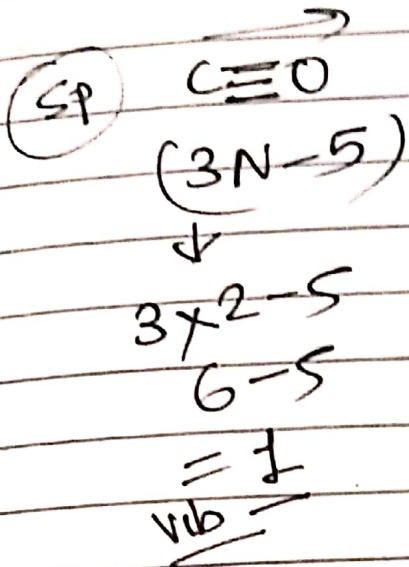 sp C≡O
(3N-5)
↓
3×2-5
6-5
= 1
vib